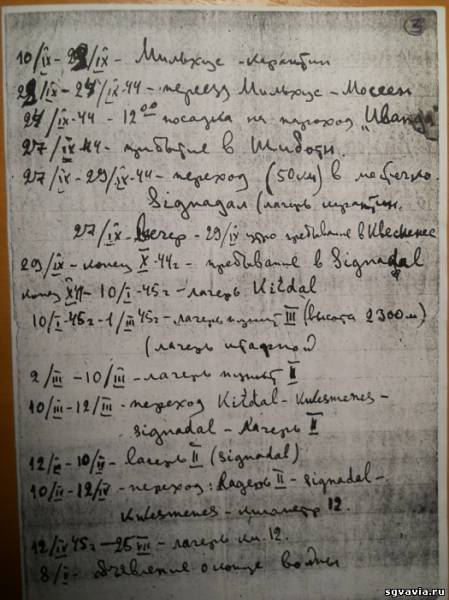 3
10/IX - 22/IX - Мильхус - карантин
22/IX - 24/IX-44 - переезд Мильхус - Мосеен
24/IX-44 - 12⁰⁰ посадка на пароход „Иванда"
27/IX-44 - прибытие в Шиботн.
27/IX - 29/IX-44 - переход (50км) в местечко
Signadal (лагерь карантин.
27/IX - вечер - 29/IX утро пребывание в Квесненес
29/IX - конец X-44г - пребывание в Signadal
конец X 44 - 10/I - 45г - лагерь Kitdal
10/I-45г - 1/III 45г - лагерь пункт III (высота 2300м)
(лагерь штрафной)
2/III - 10/III - лагерь пункт II
10/III - 12/III - переход Kitdal - Kukesmenes -
signadal - Лагерь II
12/III - 10/IV - Лагерь II (signadal)
10/IV - 12/IV - переход: Лагерь II - signadal -
Kukesmenes - километр 12.
12/IV 45г - 25/VII - лагерь км. 12.
8/V - объявление о конце войны
sgvavia.ru